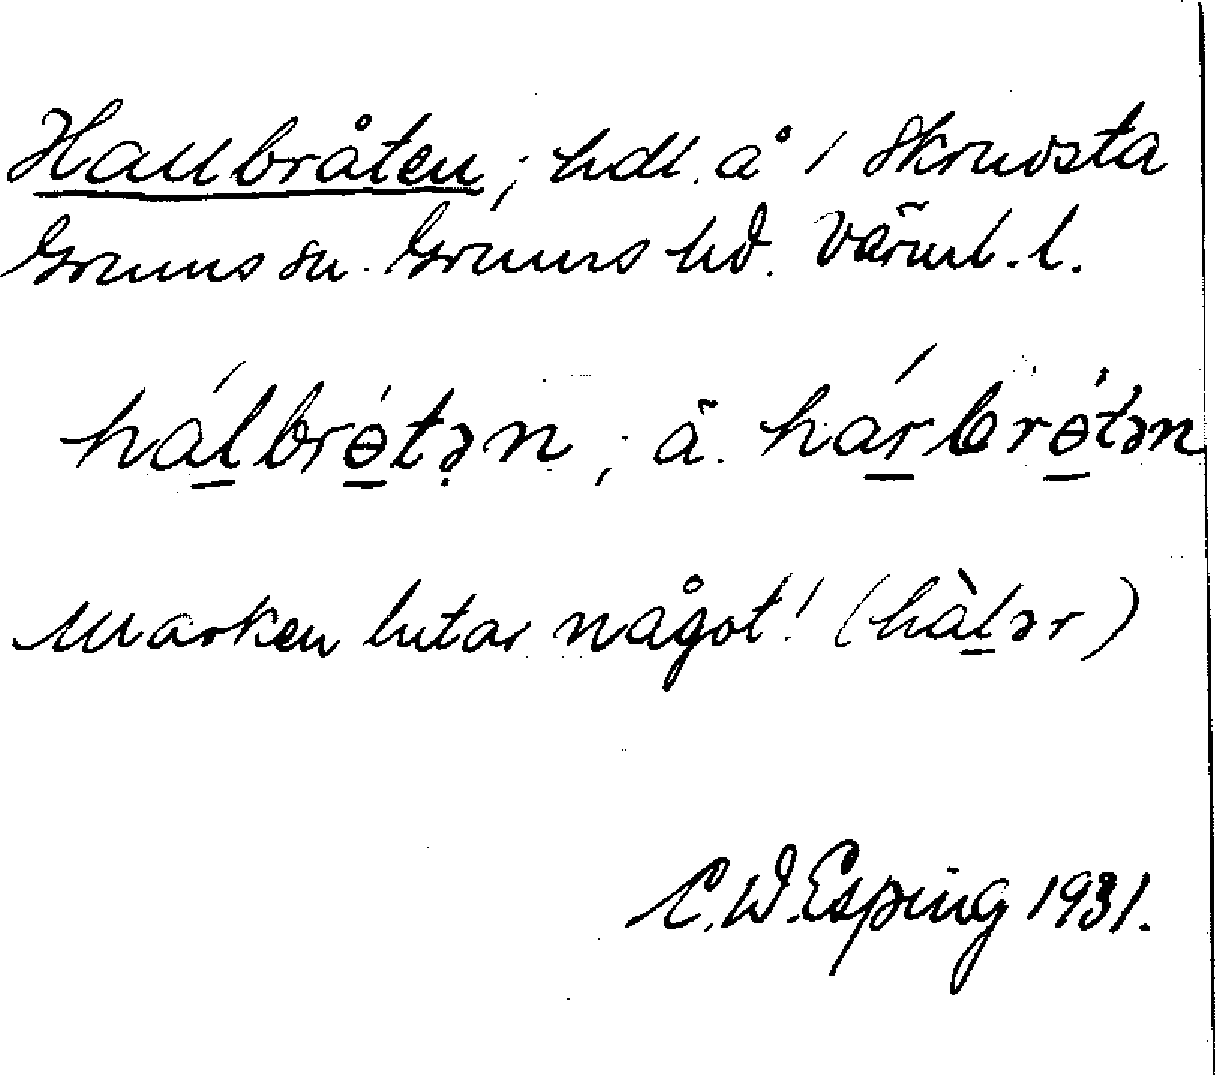 Hallbråten; hdl. å 1 Skruvsta
Grums sn. Grums hd. Värml. l.
hálbrɵ́tən, ä. hárbrɵ́tən
Marken lutar något! (hàlər)
C.W. Esping 1931.